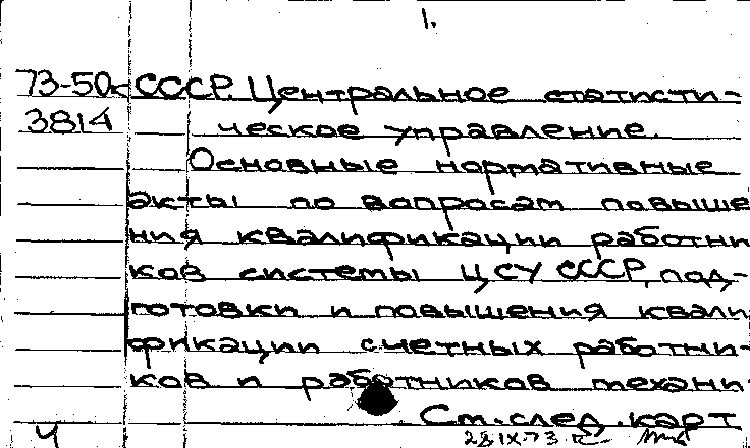 1.
73-50к СССР. Центральное статисти-
3814 ческое управление.
Основные нормативные
акты по вопросам повыше
ния квалификации работни
ков системы ЦСУ СССР, под-
готовки и повышения квали
фикации счетных работни-
ков и работников механи
См. след. карт
4 28 IX.73 г.